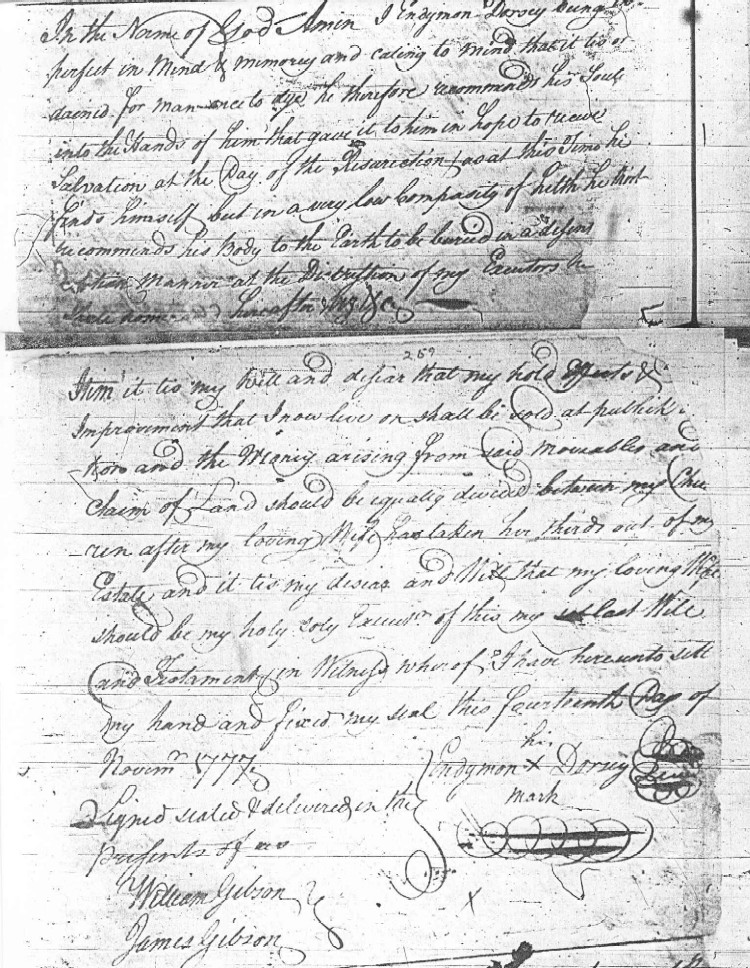 In the Name of God Amin I Endymon Dorsey being
perfect in Mind & memorey and caling to mind that it tis or
dained for man once to dye he therefore recommends his Soul
into the Hands of him that gave it to him in hope to receive
Salvation at the Day of the Resarection as at this Time he
finds himself but in a very low Composity of helth he thirst
recommends his Body to the Earth to be buried in a desent
Manner at the Discreshion of my Executors &
hereafter
257
Itim it tis my Will and desiar that my hold Effects &
Improvement that I now live on shall be sold at publick
and the Money arising from said moveables and
Claim of Land should be equaley devided between my Chil
ren after my loving Wife has taken her thirds out of my
Estate and it tis my desiar and Will that my loving Wife
should be my holy Soly Execus'r of this my last Will
and Testament in Witness where of I have hereunto sett
my hand and fixed my seal this fourteenth Day of
Novem'r 1777
his
Endymon X Dorsey
mark
Signed sealed & delivered in the
presents of us
William Gibson
James Gibson
X